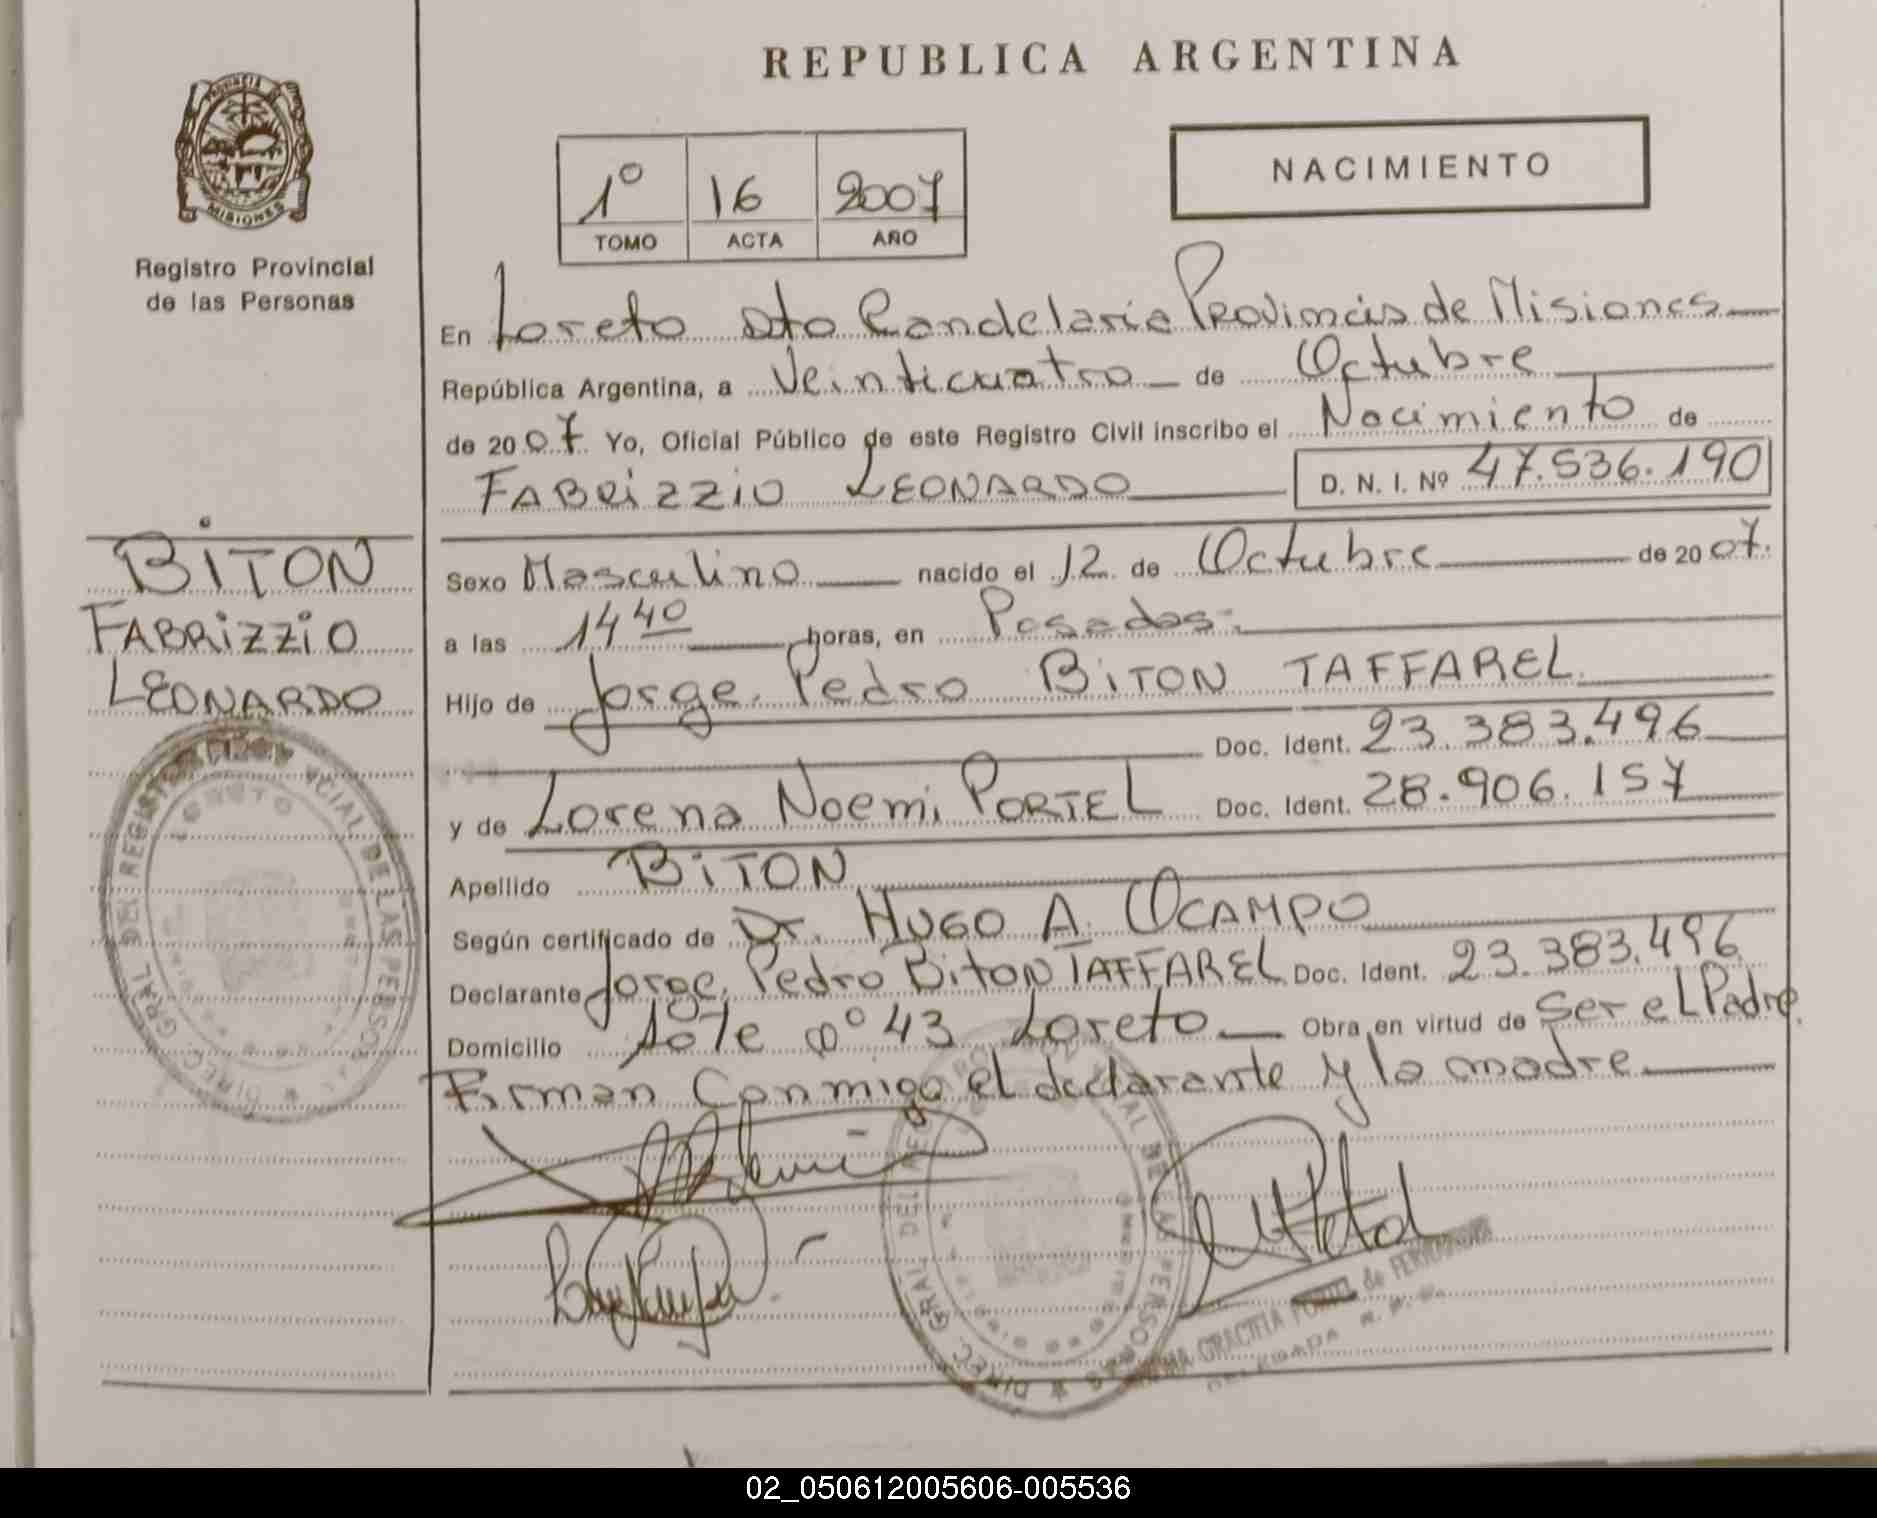 REPUBLICA ARGENTINA
PROVINCIA DE
MISIONES
Registro Provincial
de las Personas
1º 16 2007
TOMO ACTA AÑO
NACIMIENTO
En Loreto Dto Candelaria Provincia de Misiones
República Argentina, a Veinticuatro de Octubre
de 2007 Yo, Oficial Público de este Registro Civil inscribo el Nacimiento de
FABRIZZIO LEONARDO D. N. I. Nº 47.536.190
BITON
FABRIZZIO
LEONARDO
Sexo Masculino nacido el 12 de Octubre de 2007.
a las 14 40 horas, en Posadas.
Hijo de Jorge Pedro BITON TAFFAREL
Doc. Ident. 23.383.496
y de Lorena Noemi PORTEL Doc. Ident. 28.906.157
Apellido BITON
Según certificado de Dr. HUGO A. OCAMPO
Declarante Jorge Pedro BITON TAFFAREL Doc. Ident. 23.383.496
Domicilio Lote nº 43 Loreto Obra en virtud de Ser el Padre.
Firman Conmigo el declarante y la madre
DIREC. GRAL. DEL REGISTRO PROVINCIAL DE LAS PERSONAS
LORETO
DIREC. GRAL. DEL REGISTRO PROVINCIAL DE LAS PERSONAS
GRACIELA de
DELEGADA
02_050612005606-005536